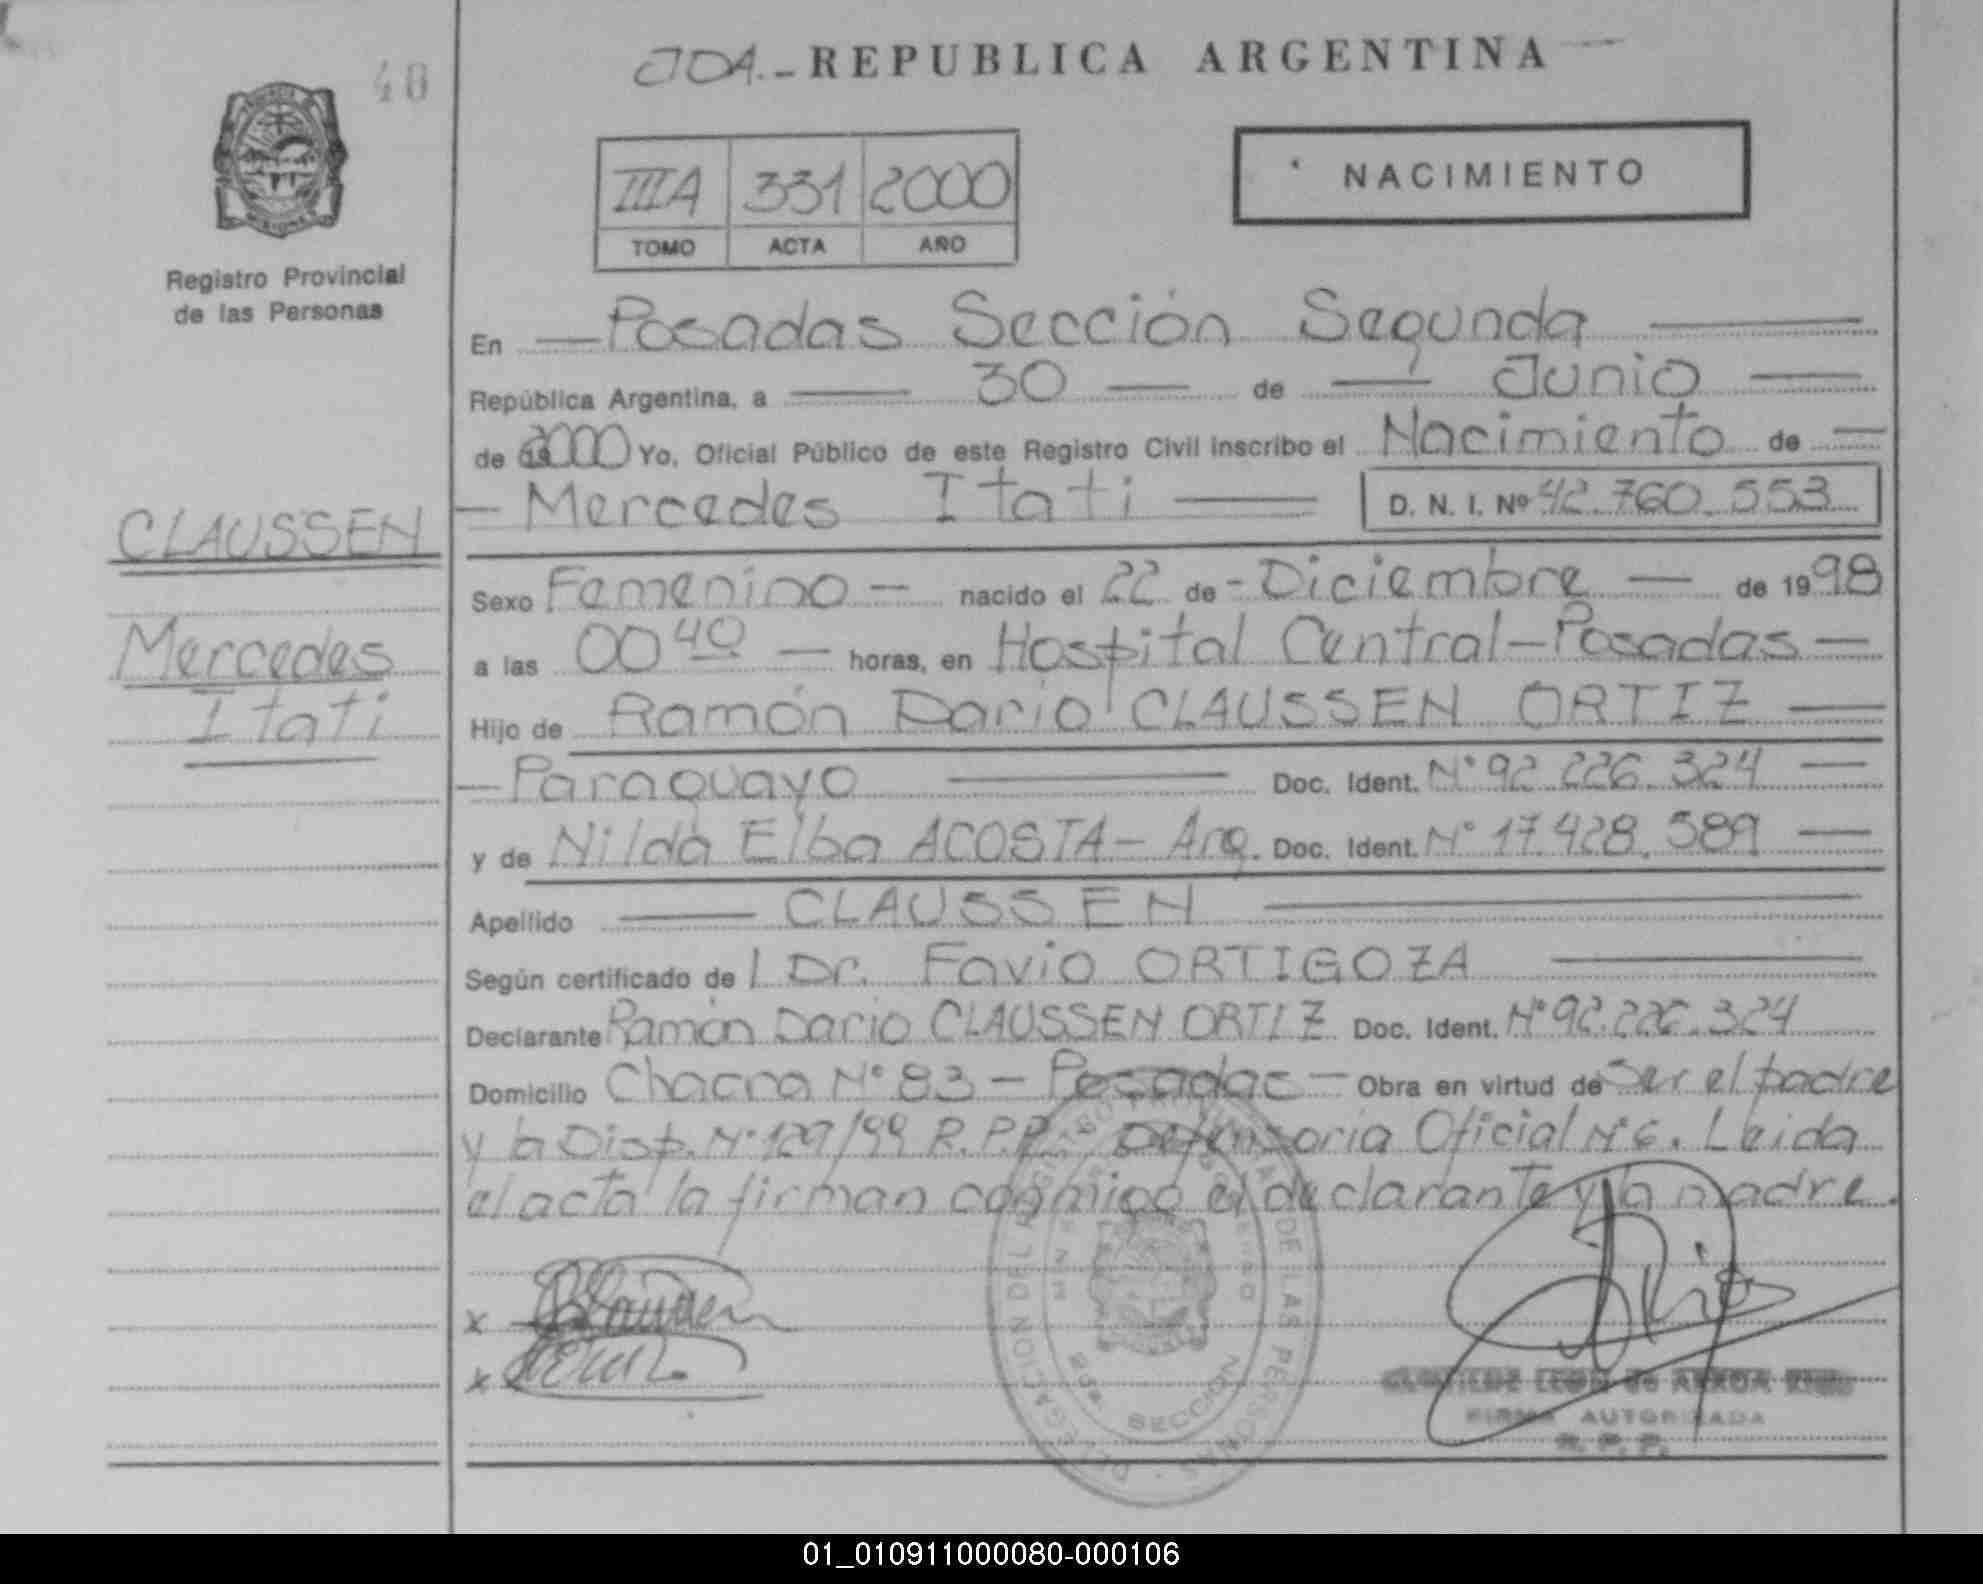 40
JDA.- REPUBLICA ARGENTINA
IIIA 331 2000
TOMO ACTA AÑO
NACIMIENTO
Registro Provincial
de las Personas
En Posadas Sección Segunda
República Argentina, a 30 de Junio
de 2000 Yo, Oficial Público de este Registro Civil inscribo el Nacimiento de
Mercedes Itati D. N. I. Nº 42.760.553
CLAUSSEN
Mercedes
Itati
Sexo Femenino nacido el 22 de Diciembre de 1998
a las 00 40 horas, en Hospital Central-Posadas
Hijo de Ramón Dario CLAUSSEN ORTIZ
Paraguayo Doc. Ident. Nº 92.226.324
y de Nilda Elba ACOSTA - Arg. Doc. Ident. Nº 17.428.589
Apellido CLAUSSEN
Según certificado de Dr. Favio ORTIGOZA
Declarante Ramón Dario CLAUSSEN ORTIZ Doc. Ident. Nº 92.226.324
Domicilio Chacra Nº 83 - Posadas - Obra en virtud de Ser el padre
y la Disp. Nº 129/99 R.P.P. - Defensoria Oficial Nº 6. Leida
el acta la firman conmigo el declarante y la madre.
x
x
DELEGACION DEL REGISTRO PROVINCIAL DE LAS PERSONAS
SECCION
FIRMA AUTORIZADA
R. P. P.
01_010911000080-000106